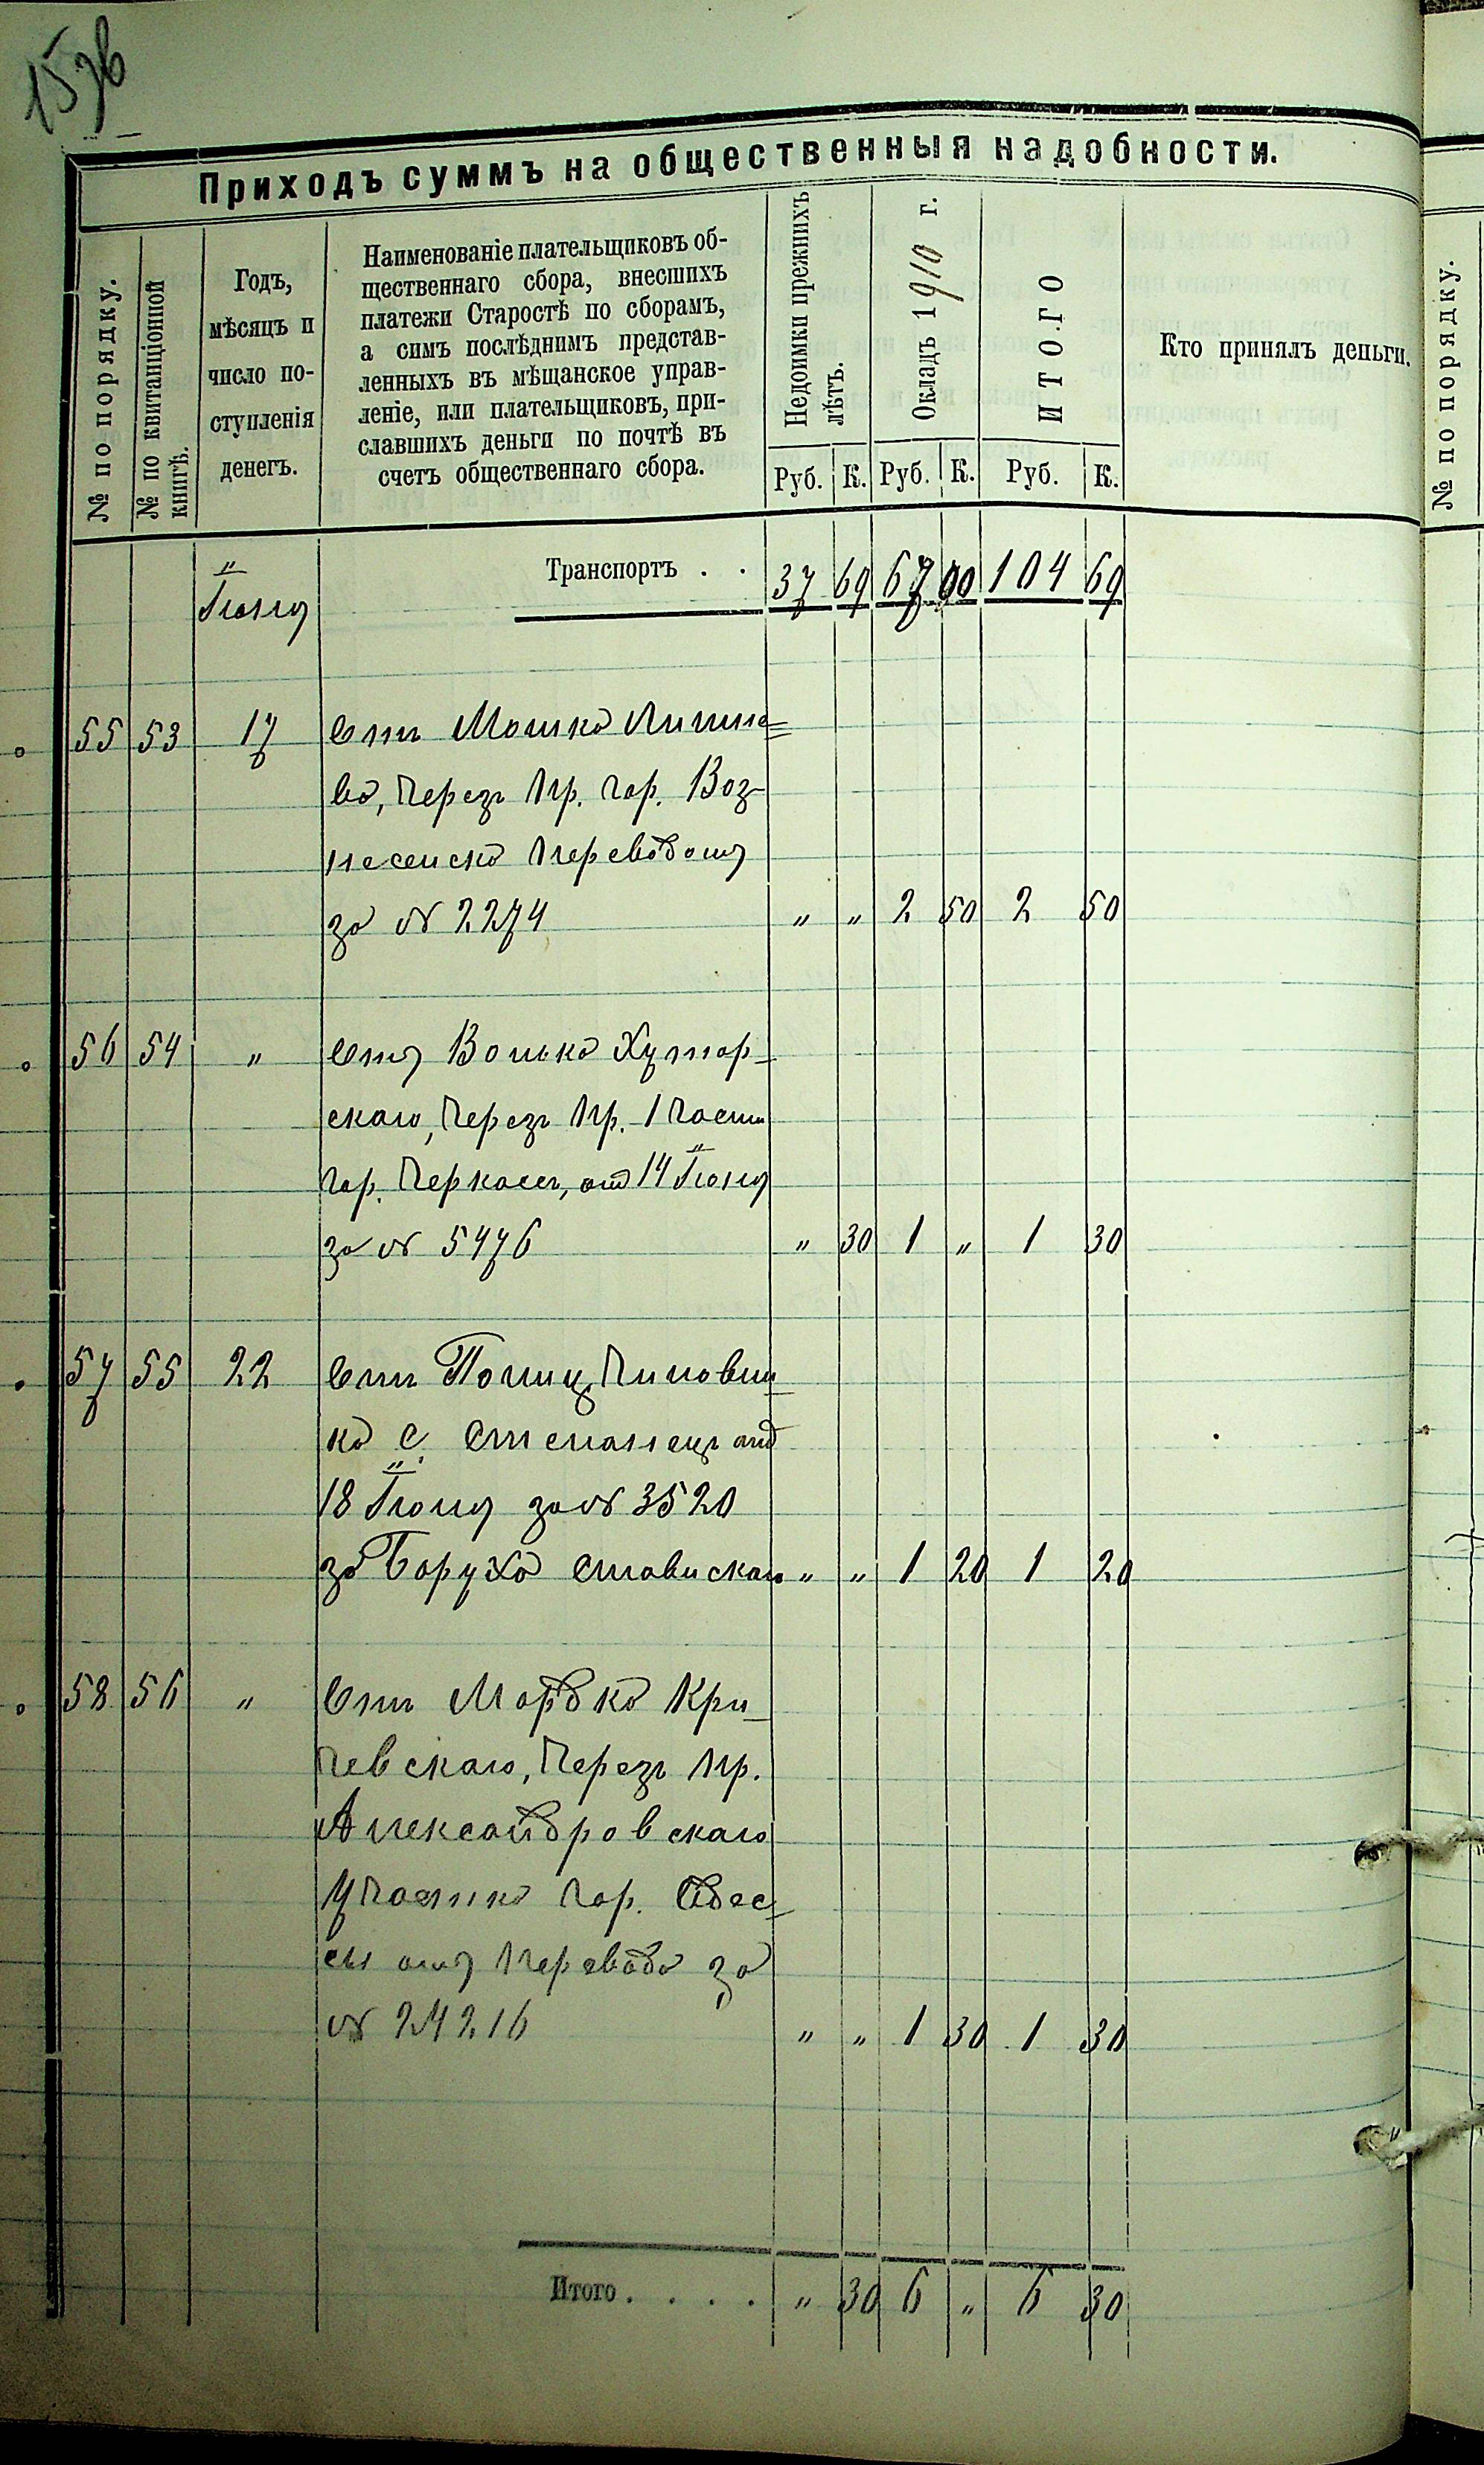 Приходъ суммъ на общественныя надобности.
№ по порядку.
№ по квитанціонной книгѣ.
Годъ,
мѣсяцъ и
число по-
ступленія
денегъ.
Наименованіе плательщиковъ об-
щественнаго сбора, внесшихъ
платежи Старостѣ по сборамъ,
а симъ послѣднимъ представ-
ленныхъ въ мѣщанское управ-
леніе, или плательщиковъ, при-
славшихъ деньги по почтѣ въ
счетъ общественнаго сбора.
Недоимки прежнихъ лѣтъ.
Окладъ 1910 г.
ИТОГО
Кто принялъ деньги.
№ по порядку.
Руб. К. Руб. К. Руб. К.
Іюня Транспортъ . . 37 69 67 00 104 69
55 53 17 Отъ Мошка
ва, Через Пр. Гор. Воз-
несенска Переводомъ
за № 2274 " " 2 50 2 50
56 54 " Отъ Волька Хутор-
скаго, Через Пр. 1 Части
Гор. Черкасъ, от 14 Іюня
за № 5476 " 30 1 " 1 30
57 55 22 Отъ Полиц. Чиновни
ка с. Степанецъ от
18 Іюня за № 3520
за Боруха Ставискаго " " 1 20 1 20
58 56 " Отъ Мордка Кри-
чевскаго, Через Пр.
Александровскаго
Участка Гор. Одес-
сы отъ Перевода за
№ 24216 " " 1 30 1 30
Итого . . . . " 30 6 " 6 30